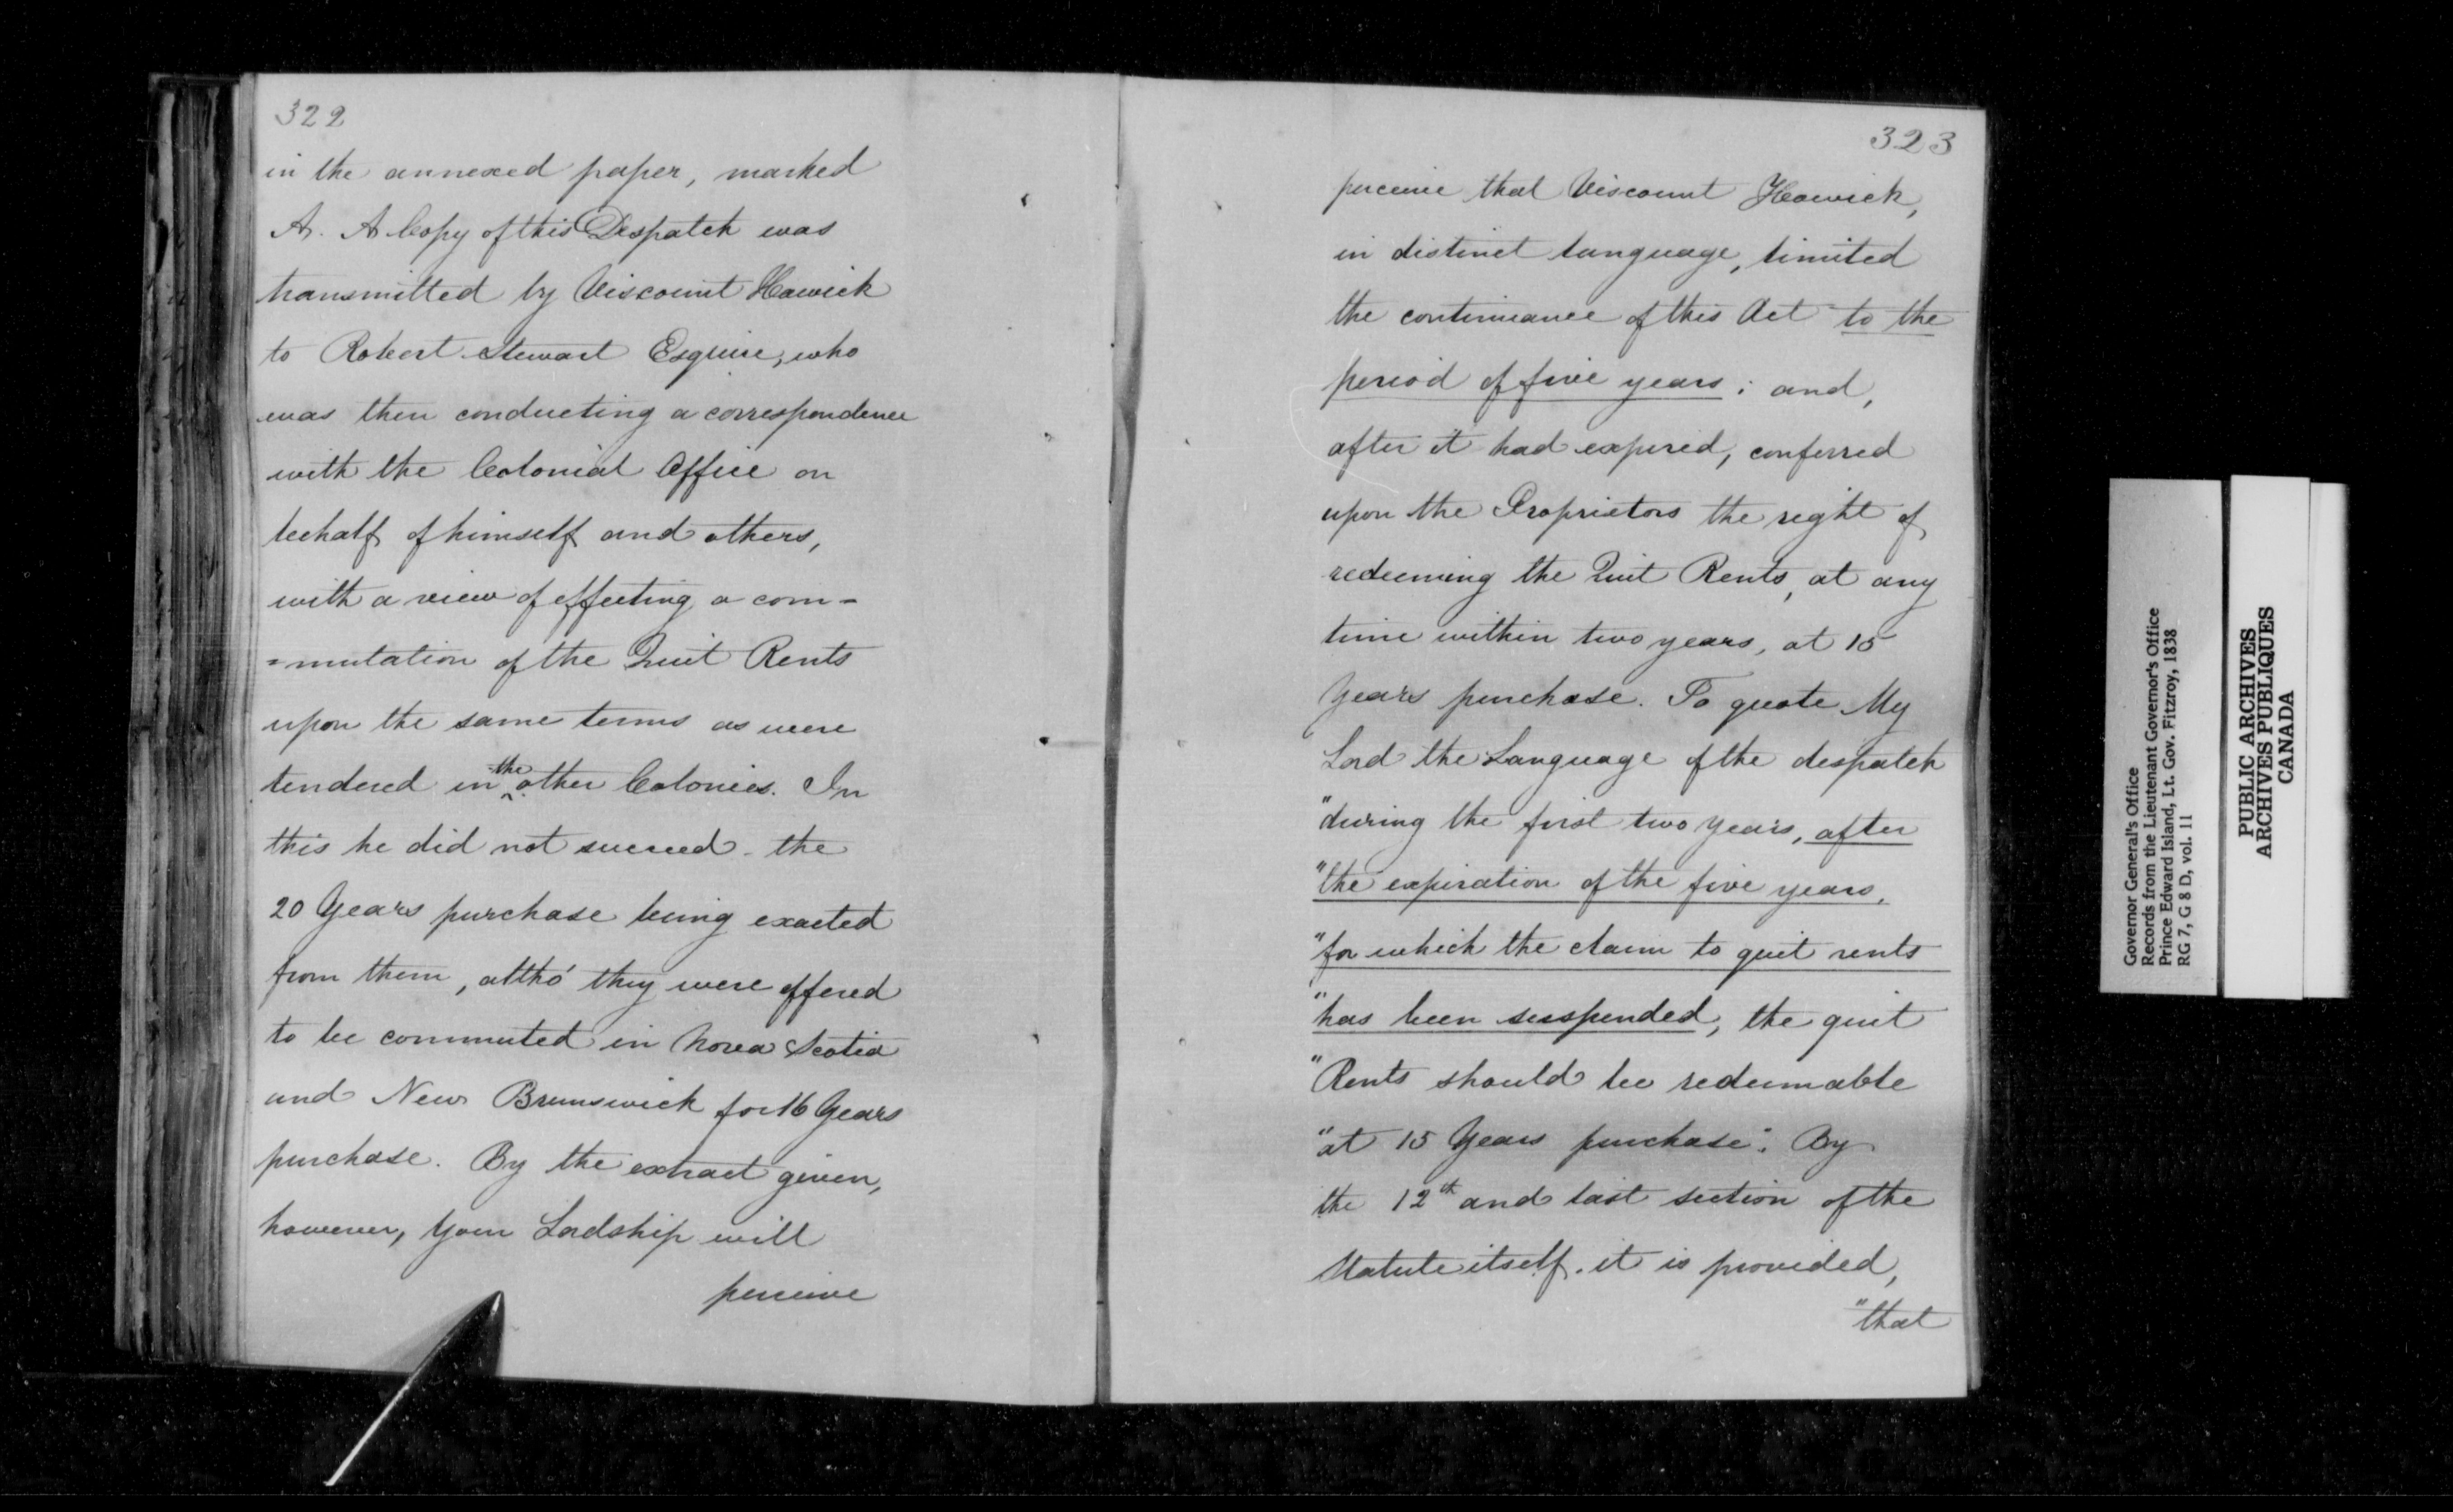 322
in the annexed paper, marked
A. A Copy of this Despatch was
transmitted by Viscount Howick
to Robert Stewart Esquire, who
was then conducting a correspondence
with the Colonial Office on
behalf of himself and others,
with a view of effecting a com=
=mutation of the Quit Rents
upon the same terms as were
tendered in the other Colonies. In
this he did not succeed - the
20 Years purchase being exacted
from them, altho' they were offered
to be commuted in Nova Scotia
and New Brunswick for 16 Years
purchase. By the extract given,
however, Your Lordship will
perceive
323
perceive that Viscount Howick,
in distinct language, limited
the continuance of this Act to the
period of five years; and,
after it had expired, conferred
upon the Proprietors the right of
redeeming the Quit Rents, at any
time within two years, at 15
Years purchase. To quote My
Lord the Language of the despatch
"during the first two years, after
"the expiration of the five years,
"for which the claim to quit rents
"has been suspended, the quit
"Rents should be redeemable
"at 15 Years purchase". By
the 12th and last section of the
Statute itself. it is provided,
"that
Governor General's Office
Records from the Lieutenant Governor's Office
Prince Edward Island, Lt. Gov. Fitzroy, 1838
RG 7, G 8 D, vol. 11
PUBLIC ARCHIVES
ARCHIVES PUBLIQUES
CANADA